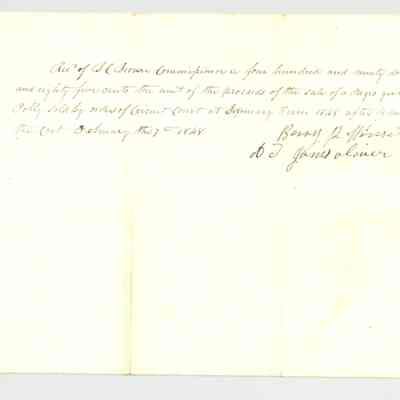 Recd of S C Brown Commissioner is four hundred and ninety do
and eighty five cents the amt of the proceeds of the sale of a negro
Polly sold by order of Circuit Court at January Term 1848 after
the cost February the 7th 1848
Berry
D T